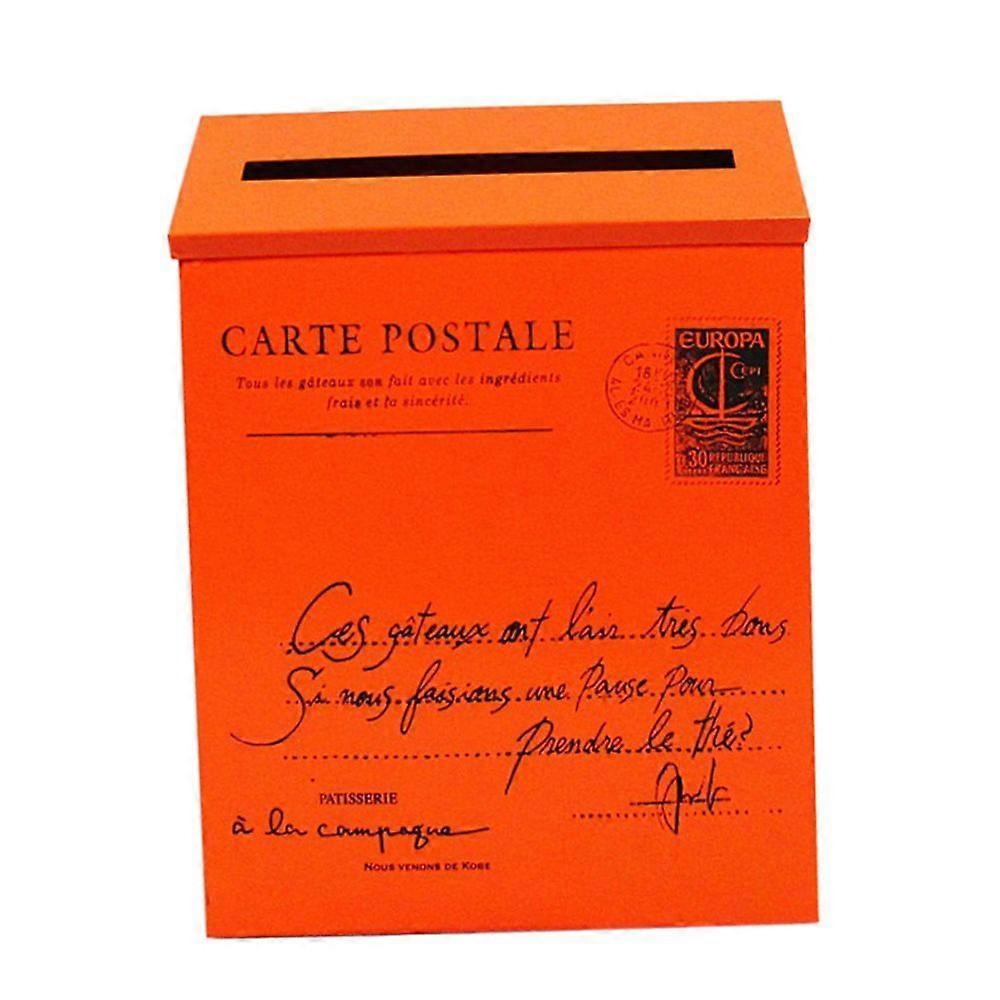 CARTE POSTALE
Tous les gâteaux son fait avec les ingrédients
frais et la sincérité.
EUROPA
CEPT
0.30 REPUBLIQUE
FRANÇAISE
Ces gâteaux ont l'air très bons
Si nous faisions une Pause Pour
Prendre le thé?
PATISSERIE
à la campagne
NOUS VENONS DE KOBE